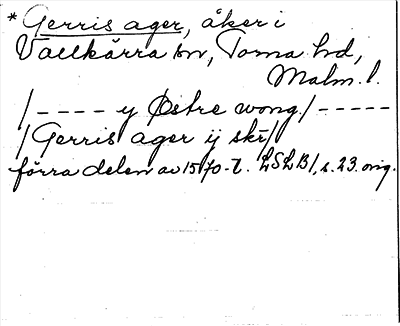 * Gerris ager, åker i
Vallkärra sn, Torna hd,
Malm. l.
/---- y Østre wong/-----
/Gerris ager ij skr/
förra delen av 1570-t. LSLB1, s. 23. orig.